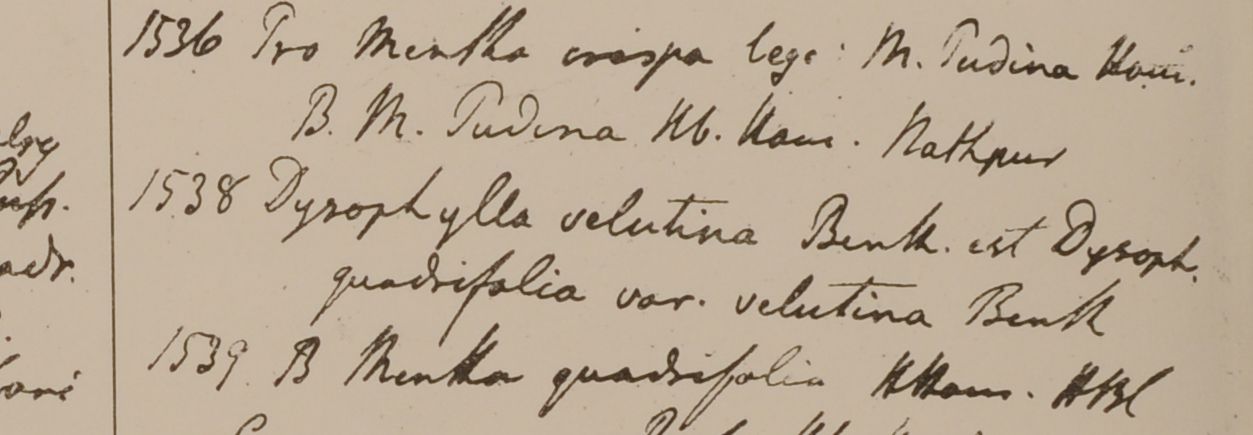 1536 Pro Mentha crispa lege: M. Pudina Ham.
B. M. Pudina Hb. Ham. Nathpur
1538 Dysophylla velutina Benth. est Dysoph.
quadrifolia var. velutina Benth
1539 B Mentha quadrifolia HHam.